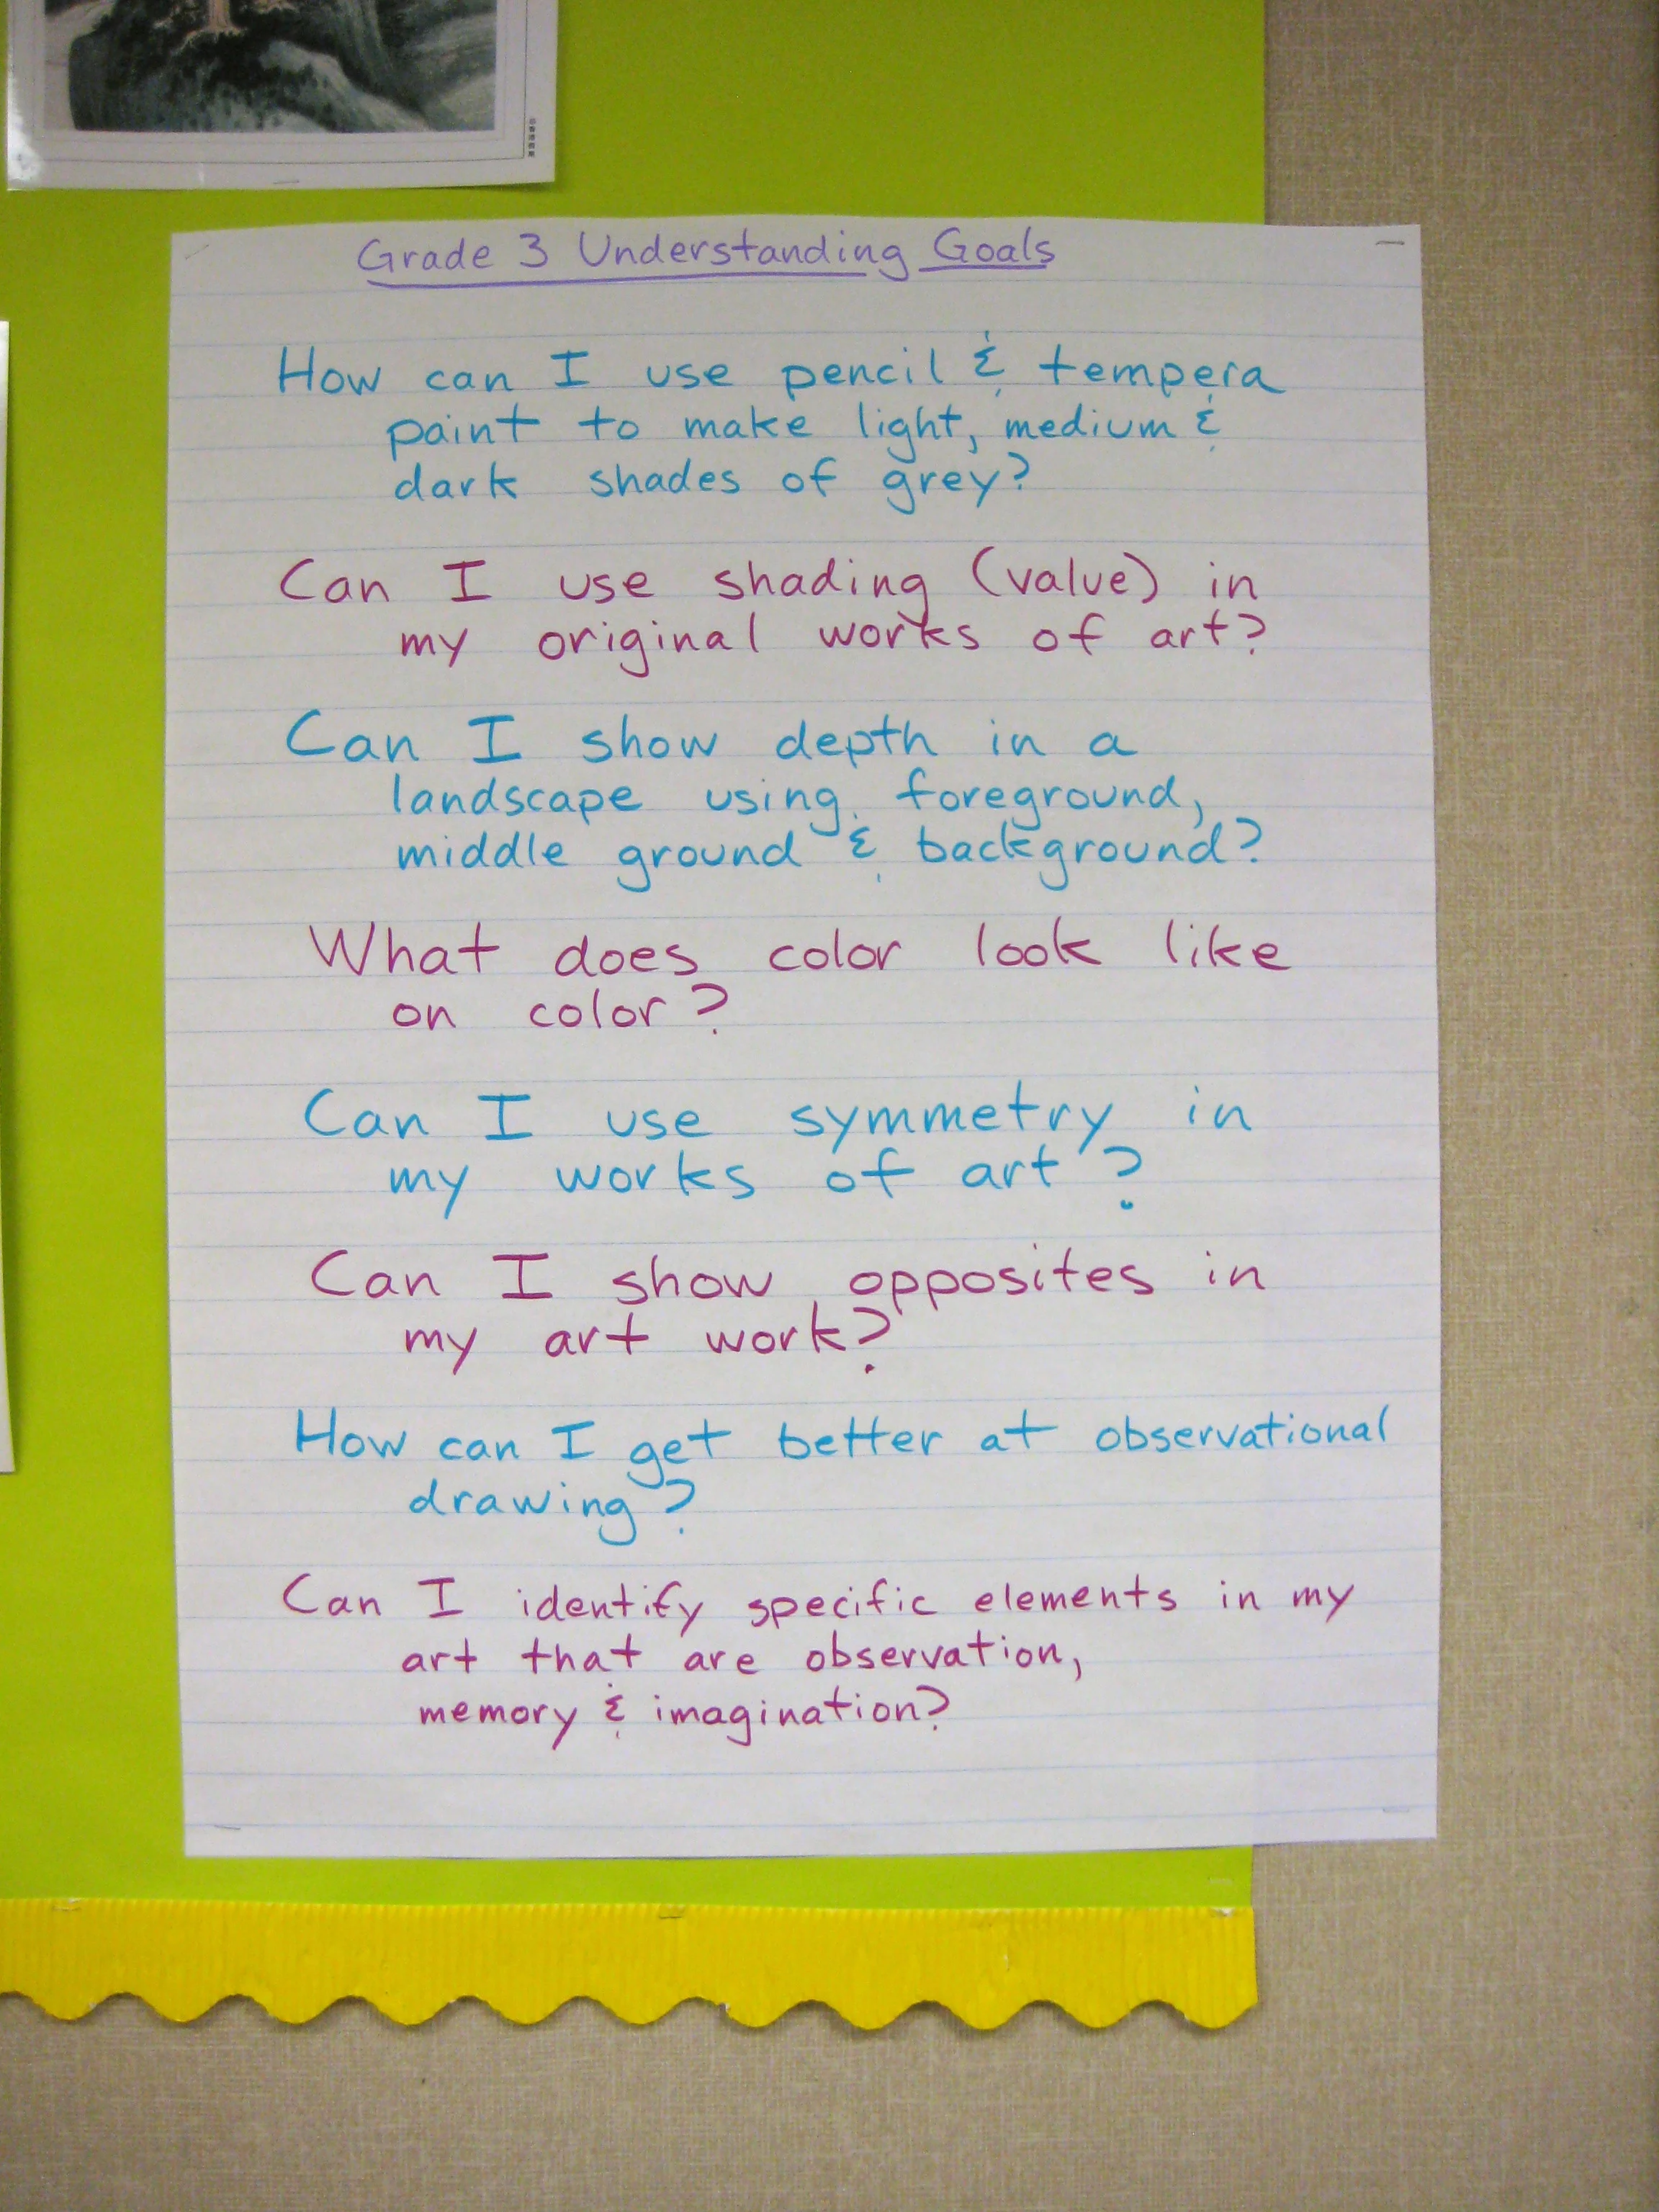 Grade 3 Understanding Goals
How can I use pencil & tempera
paint to make light, medium &
dark shades of grey?
Can I use shading (value) in
my original works of art?
Can I show depth in a
landscape using foreground,
middle ground & background?
What does color look like
on color?
Can I use symmetry in
my works of art?
Can I show opposites in
my art work?
How can I get better at observational
drawing?
Can I identify specific elements in my
art that are observation,
memory & imagination?